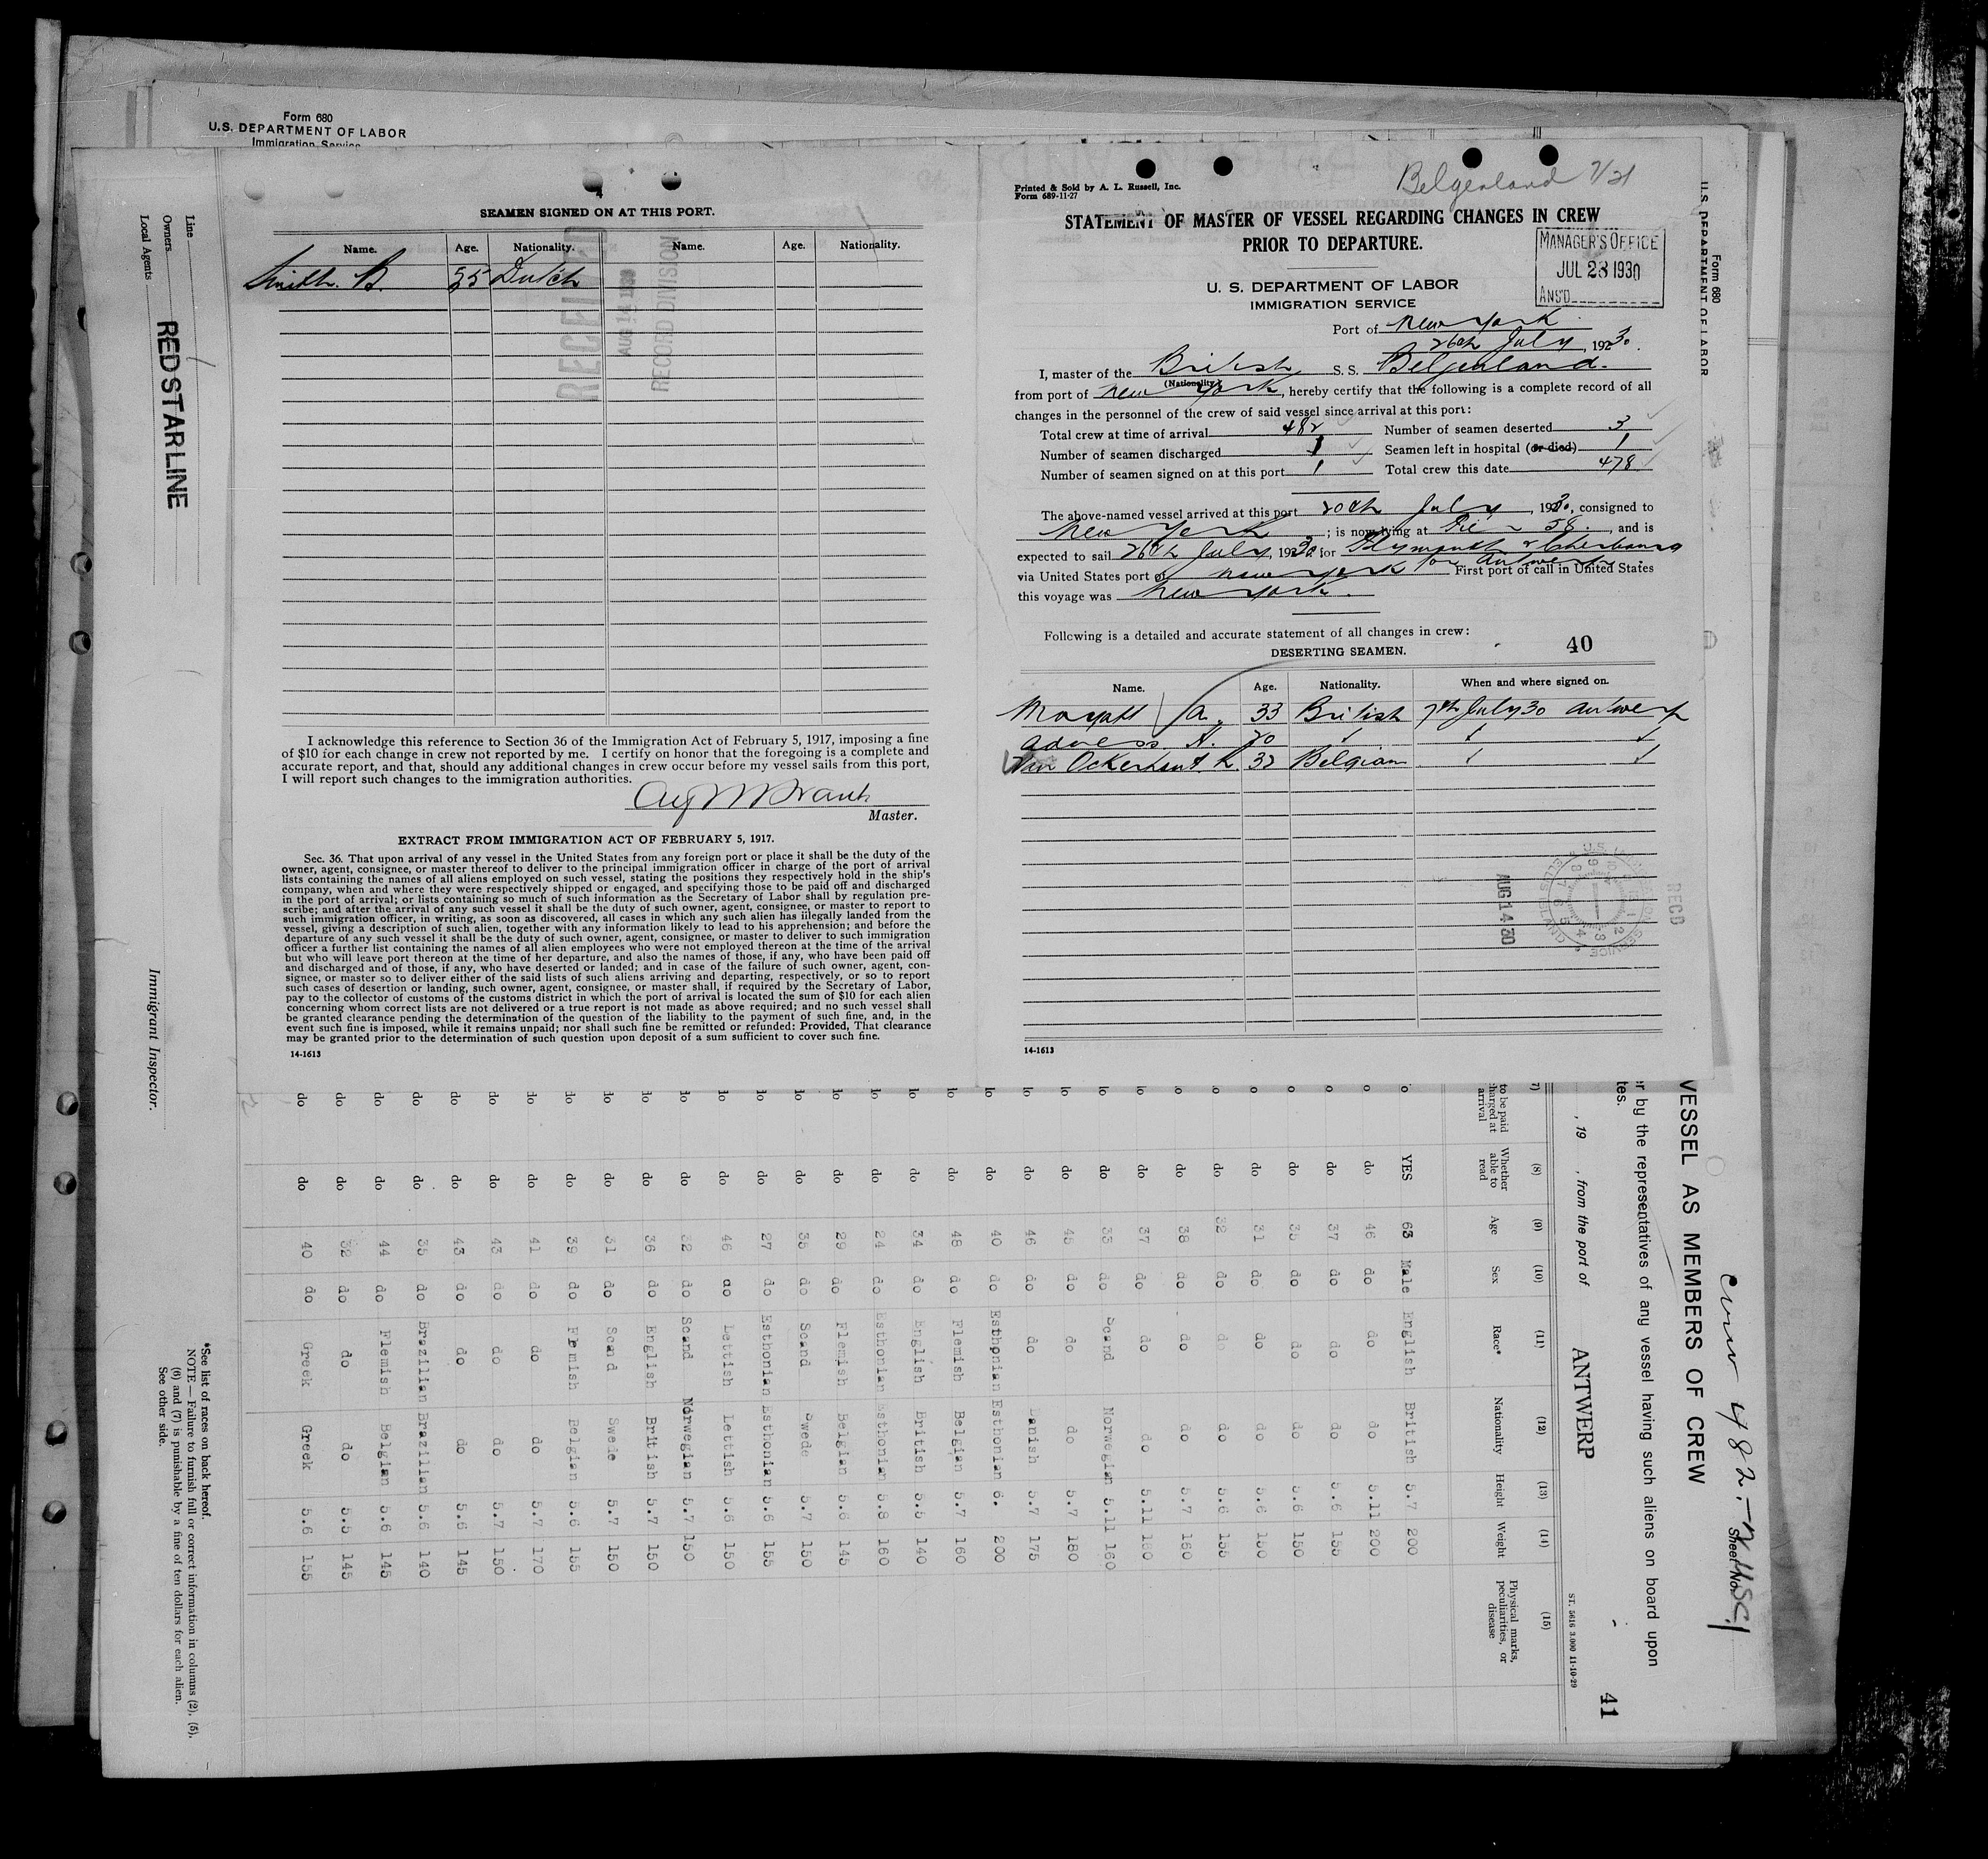 Form 680
U.S. DEPARTMENT OF LABOR
Immigration Service
Line
Owners
Local Agents
RED STAR LINE
Immigrant Inspector.
*See list of races on back hereof.
NOTE — Failure to furnish full or correct information in columns (2), (5),
(6) and (7) is punishable by a fine of ten dollars for each alien.
See other side.
4
SEAMEN SIGNED ON AT THIS PORT.
Name. Age. Nationality. Name. Age. Nationality.
Smith. B. Dutch
RECEIVED
AUG 14 1930
RECORD DIVISION
I acknowledge this reference to Section 36 of the Immigration Act of February 5, 1917, imposing a fine
of $10 for each change in crew not reported by me. I certify on honor that the foregoing is a complete and
accurate report, and that, should any additional changes in crew occur before my vessel sails from this port,
I will report such changes to the immigration authorities.
Master.
EXTRACT FROM IMMIGRATION ACT OF FEBRUARY 5, 1917.
Sec. 36. That upon arrival of any vessel in the United States from any foreign port or place it shall be the duty of the
owner, agent, consignee, or master thereof to deliver to the principal immigration officer in charge of the port of arrival
lists containing the names of all aliens employed on such vessel, stating the positions they respectively hold in the ship's
company, when and where they were respectively shipped or engaged, and specifying those to be paid off and discharged
in the port of arrival; or lists containing so much of such information as the Secretary of Labor shall by regulation pre-
scribe; and after the arrival of any such vessel it shall be the duty of such owner, agent, consignee, or master to report to
such immigration officer, in writing, as soon as discovered, all cases in which any such alien has illegally landed from the
vessel, giving a description of such alien, together with any information likely to lead to his apprehension; and before the
departure of any such vessel it shall be the duty of such owner, agent, consignee, or master to deliver to such immigration
officer a further list containing the names of all alien employees who were not employed thereon at the time of the arrival
but who will leave port thereon at the time of her departure, and also the names of those, if any, who have been paid off
and discharged and of those, if any, who have deserted or landed; and in case of the failure of such owner, agent, con-
signee, or master so to deliver either of the said lists of such aliens arriving and departing, respectively, or so to report
such cases of desertion or landing, such owner, agent, consignee, or master shall, if required by the Secretary of Labor,
pay to the collector of customs of the customs district in which the port of arrival is located the sum of $10 for each alien
concerning whom correct lists are not delivered or a true report is not made as above required; and no such vessel shall
be granted clearance pending the determination of the question of the liability to the payment of such fine, and, in the
event such fine is imposed, while it remains unpaid; nor shall such fine be remitted or refunded: Provided, That clearance
may be granted prior to the determination of such question upon deposit of a sum sufficient to cover such fine.
14-1613
Printed & Sold by A. L. Russell, Inc.
Form 689-11-27
Belgenland 7/21
STATEMENT OF MASTER OF VESSEL REGARDING CHANGES IN CREW
PRIOR TO DEPARTURE.
MANAGER'S OFFICE
JUL 28 1930
ANS'D
U. S. DEPARTMENT OF LABOR
IMMIGRATION SERVICE
Port of New York
26th July, 1930.
I, master of the British S. S. Belgenland.
(Nationality)
from port of New York, hereby certify that the following is a complete record of all
changes in the personnel of the crew of said vessel since arrival at this port:
Total crew at time of arrival 482 Number of seamen deserted 3
Number of seamen discharged 1 Seamen left in hospital (or died) 1
Number of seamen signed on at this port 1 Total crew this date 478
The above-named vessel arrived at this port 20th July, 1930, consigned to
New York; is now lying at Pier 58., and is
expected to sail 26th July, 1930 for Plymouth & Cherbourg
for Antwerp.
via United States port of New York First port of call in United States
this voyage was New York.
Following is a detailed and accurate statement of all changes in crew:
DESERTING SEAMEN.
40
Name. Age. Nationality. When and where signed on.
A. 33 British 7th July 30 Antwerp
H. ✓ ✓ ✓
Van Belgian ✓ ✓
AUG 14 30
REC'D
14-1613
Form 680
U.S. DEPARTMENT OF LABOR
VESSEL AS MEMBERS OF CREW
Crew 482.
Sheet No.
er by the representatives of any vessel having such aliens on board upon
tes.
, 19 , from the port of ANTWERP
ST. 5616 3.000 11-10-29
41
(7) (8) (9) (10) (11) (12) (13) (14) (15)
to be paid
charged at
arrival
Whether
able to
read
Age Sex Race* Nationality Height Weight
Physical marks,
peculiarities, or
disease
YES 63 Male English British 5.7 200
do 46 do do do 5.11 200
do 37 do do do 5.6 155
do 35 do do do 5.6 150
do 31 do do do 5.6 150
do 32 do do do 5.6 155
do 38 do do do 5.7 160
do 37 do do do 5.11 180
do 33 do Scand Norwegian 5.11 160
do 45 do do do 5.7 180
do 46 do do Danish 5.7 175
do 40 do Esthonian Esthonian 6. 200
do 48 do Flemish Belgian 5.7 160
do 34 do English British 5.5 140
do 24 do Esthonian Esthonian 5.8 160
do 29 do Flemish Belgian 5.6 145
do 35 do Scand Swede 5.7 150
do 27 do Esthonian Esthonian 5.6 155
do 46 do Lettish Lettish 5.6 150
do 32 do Scand Norwegian 5.7 150
do 36 do English British 5.7 150
do 31 do Scand Swede 5.7 150
do 39 do Flemish Belgian 5.6 155
do 41 do do do 5.7 170
do 43 do do do 5.7 150
do 43 do do do 5.6 145
do 35 do Brazilian Brazilian 5.6 140
do 44 do Flemish Belgian 5.6 145
do 32 do do do 5.5 145
do 40 do Greek Greek 5.6 155